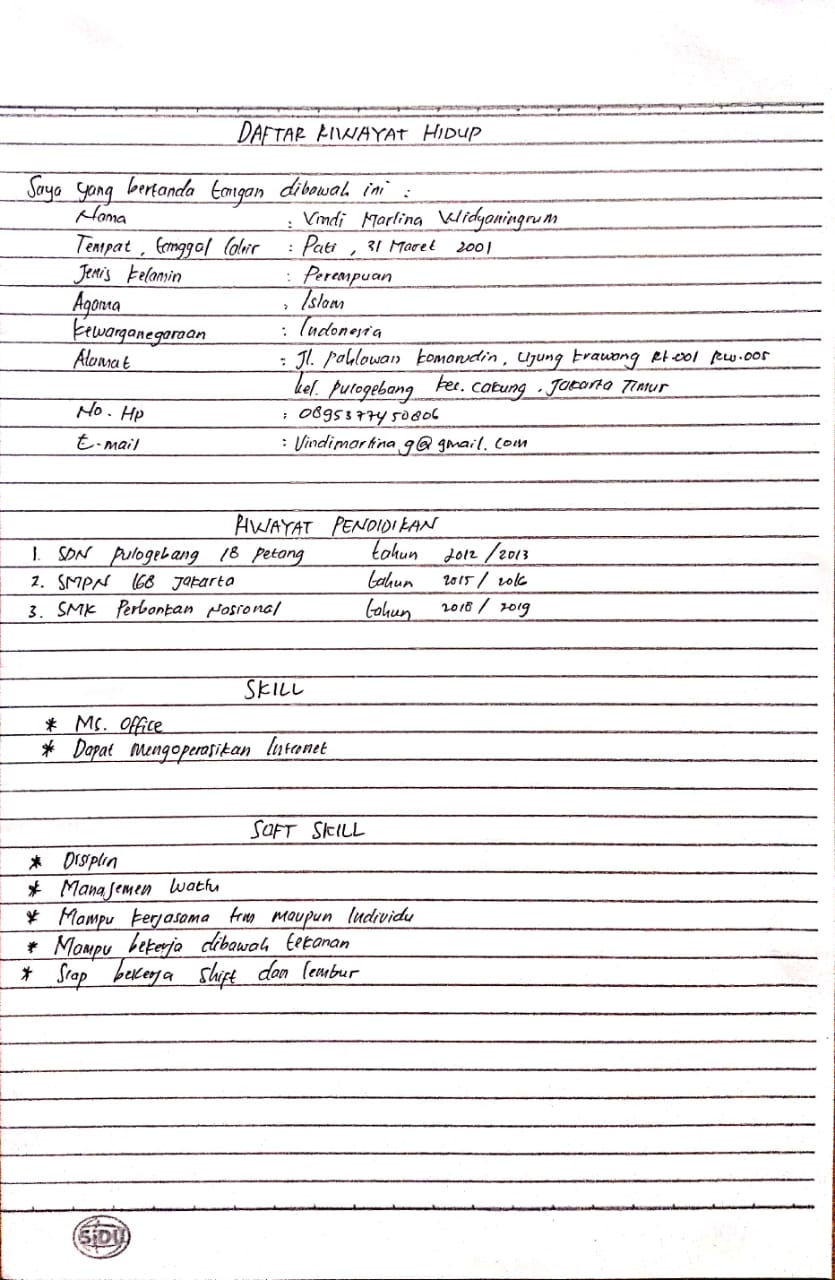 DAFTAR RIWAYAT HIDUP
Saya yang bertanda tangan dibawah ini :
Nama : Vindi Marlina Widyaningrum
Tempat, tanggal lahir : Pati, 31 Maret 2001
Jenis kelamin : Perempuan
Agama : Islam
Kewarganegaraan : Indonesia
Alamat : Jl. Pahlawan Komarudin, Ujung Krawang Rt.001 Rw.005
kel. Pulogebang kec. Cakung, Jakarta Timur
No. Hp : 0895377450806
E-mail : Vindimarlina.g@gmail.com
RIWAYAT PENDIDIKAN
1. SDN Pulogebang 18 Petang tahun 2012/2013
2. SMPN 168 Jakarta tahun 2015/2016
3. SMK Perbankan Nasional tahun 2018/2019
SKILL
* Ms. Office
* Dapat Mengoperasikan Internet
SOFT SKILL
* Disiplin
* Manajemen Waktu
* Mampu kerjasama tim maupun Individu
* Mampu bekerja dibawah tekanan
* Siap bekerja Shift dan lembur
SiDU